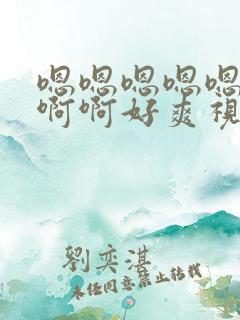 嗯嗯嗯嗯嗯
啊啊好爽视
劉奕湛
未经同意禁止转载